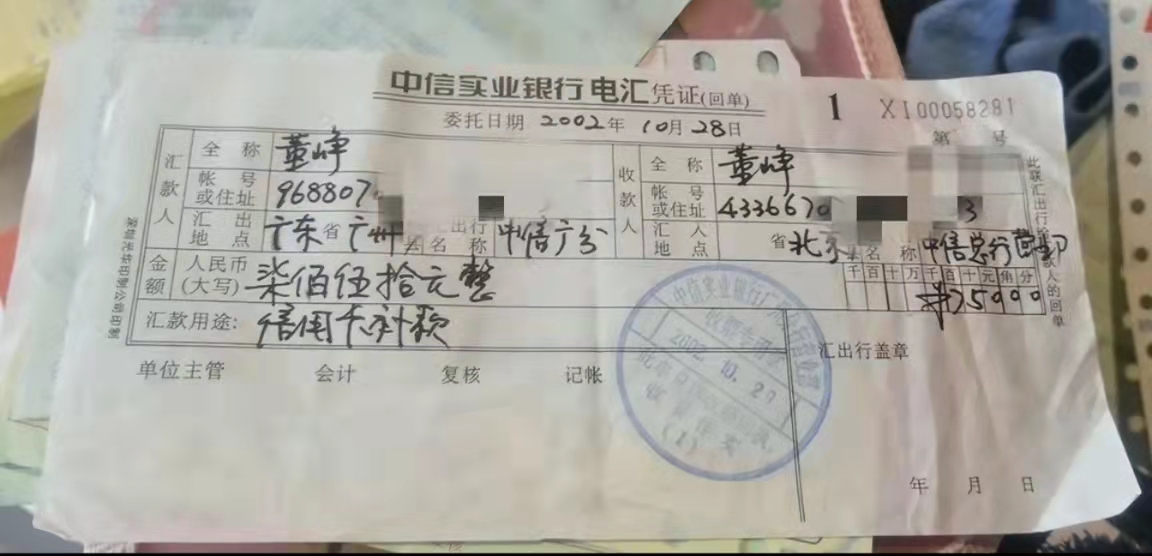 中信实业银行电汇凭证(回单) 1 XI00058281
委托日期 2002年 10月 28日 第 号
汇款人 全称 董峥 收款人 全称 董峥
帐号或住址 968807 帐号或住址 4336670 3
汇出地点 广东省广州 汇出行名称 中信广分 汇入地点 省北京 名称 中信总行营部
金额 人民币(大写) 柒佰伍拾元整 千百十万千百十元角分 ¥75000
汇款用途: 信用卡补款
汇出行盖章
单位主管 会计 复核 记帐
年 月 日
中信实业银行广州
收妥
2002.10.29
(1)